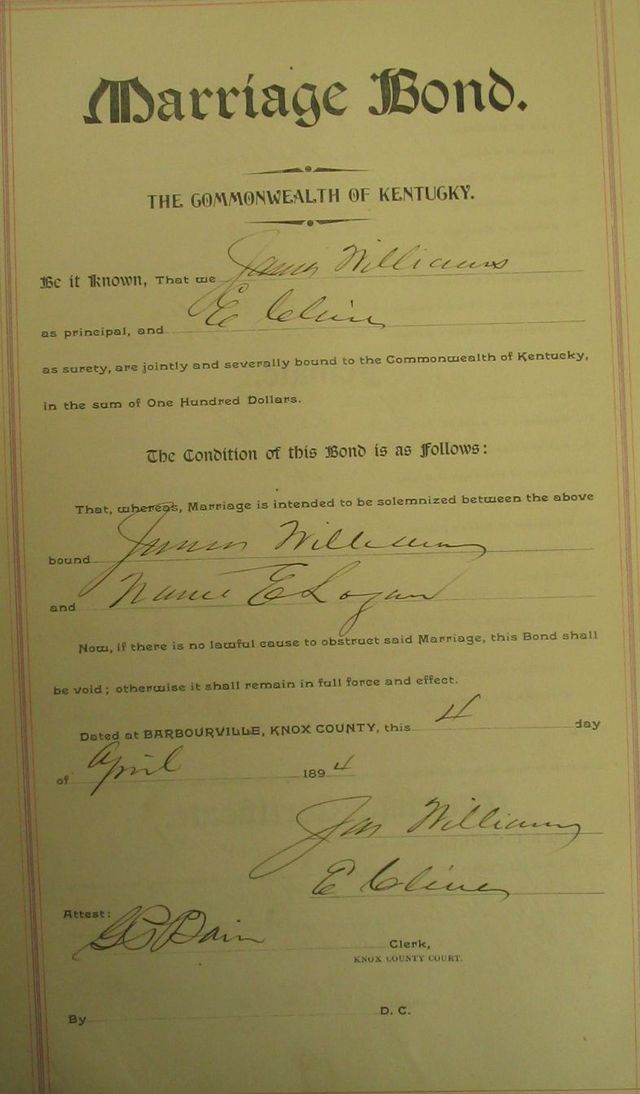 Marriage Bond.
THE COMMONWEALTH OF KENTUCKY.
Be it Known, That we James Williams
as principal, and E Cline
as surety, are jointly and severally bound to the Commonwealth of Kentucky,
in the sum of One Hundred Dollars.
The Condition of this Bond is as Follows:
That, whereas, Marriage is intended to be solemnized between the above
bound James Williams
and E Logan
Now, if there is no lawful cause to obstruct said Marriage, this Bond shall
be void; otherwise it shall remain in full force and effect.
Dated at BARBOURVILLE, KNOX COUNTY, this 4 day
of April 1894
Jas Williams
E Cline
Attest:
Clerk,
KNOX COUNTY COURT.
By D. C.